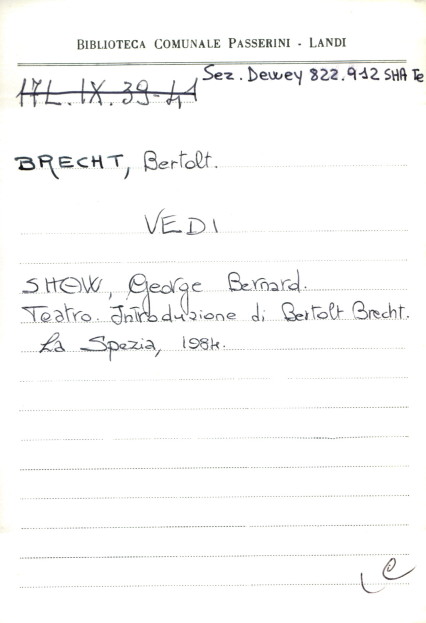 BIBLIOTECA COMUNALE PASSERINI - LANDI
Sez. Dewey 822.912 SHA Te
17L.IX.39-41
BRECHT, Bertolt.
VEDI
SHOW, George Bernard.
Teatro. Introduzione di Bertolt Brecht.
La Spezia, 1984.